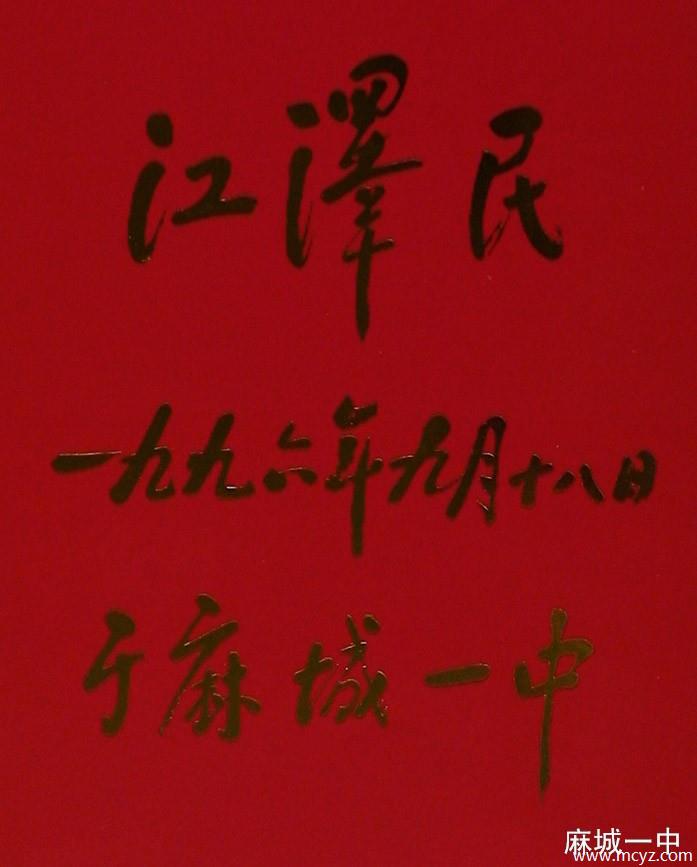 江澤民
一九九六年九月十八日
于麻城一中
麻城一中
www.mcyz.com